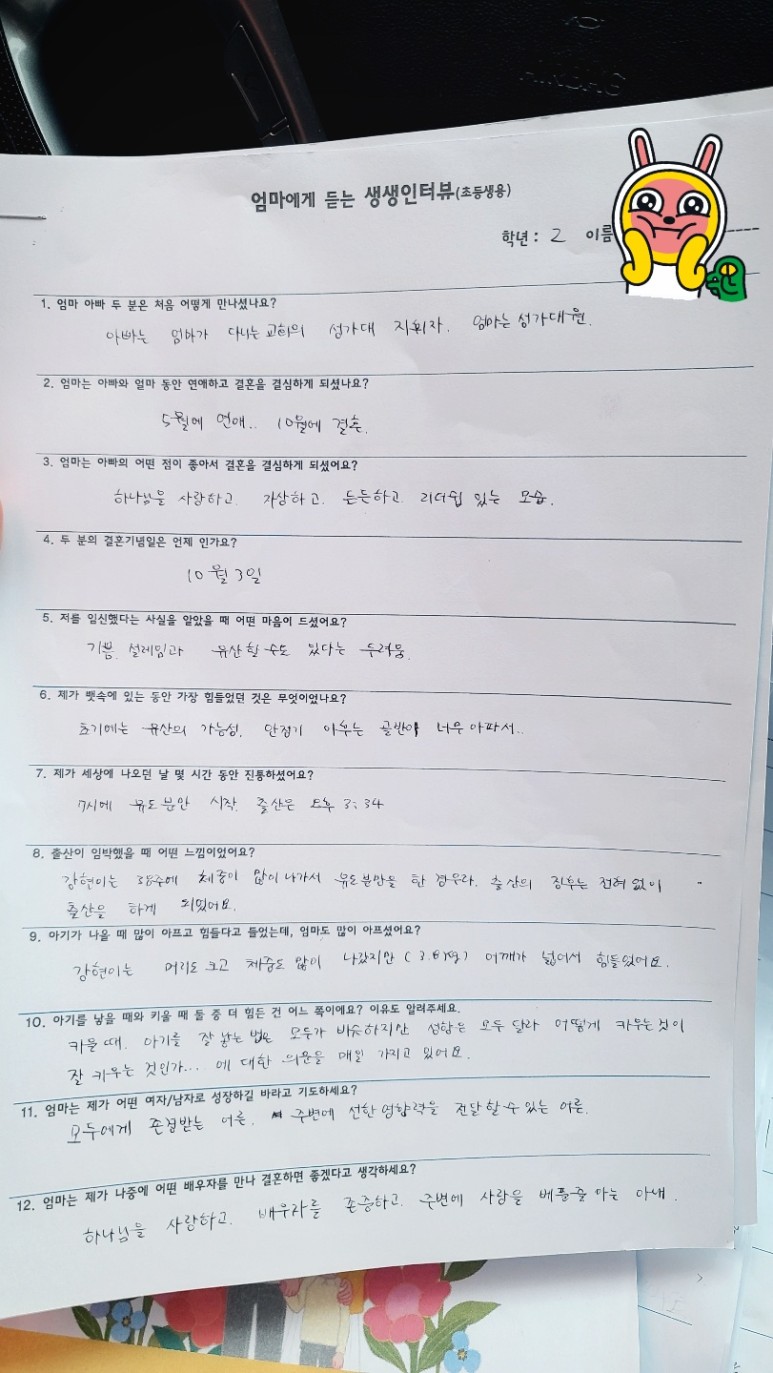 엄마에게 듣는 생생인터뷰(초등생용)
학년 : 2 이름
1. 엄마 아빠 두 분은 처음 어떻게 만나셨나요?
아빠는 엄마가 다니는 교회의 성가대 지휘자. 엄마는 성가대원.
2. 엄마는 아빠와 얼마 동안 연애하고 결혼을 결심하게 되셨나요?
5월에 연애.. 10월에 결혼.
3. 엄마는 아빠의 어떤 점이 좋아서 결혼을 결심하게 되셨어요?
하나님을 사랑하고. 자상하고. 든든하고. 리더쉽 있는 모습.
4. 두 분의 결혼기념일은 언제 인가요?
10월 3일
5. 저를 임신했다는 사실을 알았을 때 어떤 마음이 드셨어요?
기쁨. 설레임과 유산할 수도 있다는 두려움.
6. 제가 뱃속에 있는 동안 가장 힘들었던 것은 무엇이었나요?
초기에는 유산의 가능성. 안정기 이후는 골반이 너무 아파서..
7. 제가 세상에 나오던 날 몇 시간 동안 진통하셨어요?
7시에 유도분만 시작. 출산은 오후 3:34
8. 출산이 임박했을 때 어떤 느낌이었어요?
강현이는 38주에 체중이 많이 나가서 유도분만을 한 경우라. 출산의 징후는 전혀 없이
출산을 하게 되었어요.
9. 아기가 나올 때 많이 아프고 힘들다고 들었는데, 엄마도 많이 아프셨어요?
강현이는 머리도 크고 체중도 많이 나갔지만 ( 3.61kg) 어깨가 넓어서 힘들었어요.
10. 아기를 낳을 때와 키울 때 둘 중 더 힘든 건 어느 쪽이에요? 이유도 알려주세요.
키울 때. 아기를 잘 낳는 법은 모두가 비슷하지만 성향은 모두 달라 어떻게 키우는 것이
잘 키우는 것인가... 에 대한 의문을 매일 가지고 있어요.
11. 엄마는 제가 어떤 여자/남자로 성장하길 바라고 기도하세요?
모두에게 존경받는 어른. 주변에 선한 영향력을 전달할 수 있는 어른.
12. 엄마는 제가 나중에 어떤 배우자를 만나 결혼하면 좋겠다고 생각하세요?
하나님을 사랑하고. 배우자를 존중하고. 주변에 사랑을 베풀줄 아는 아내.